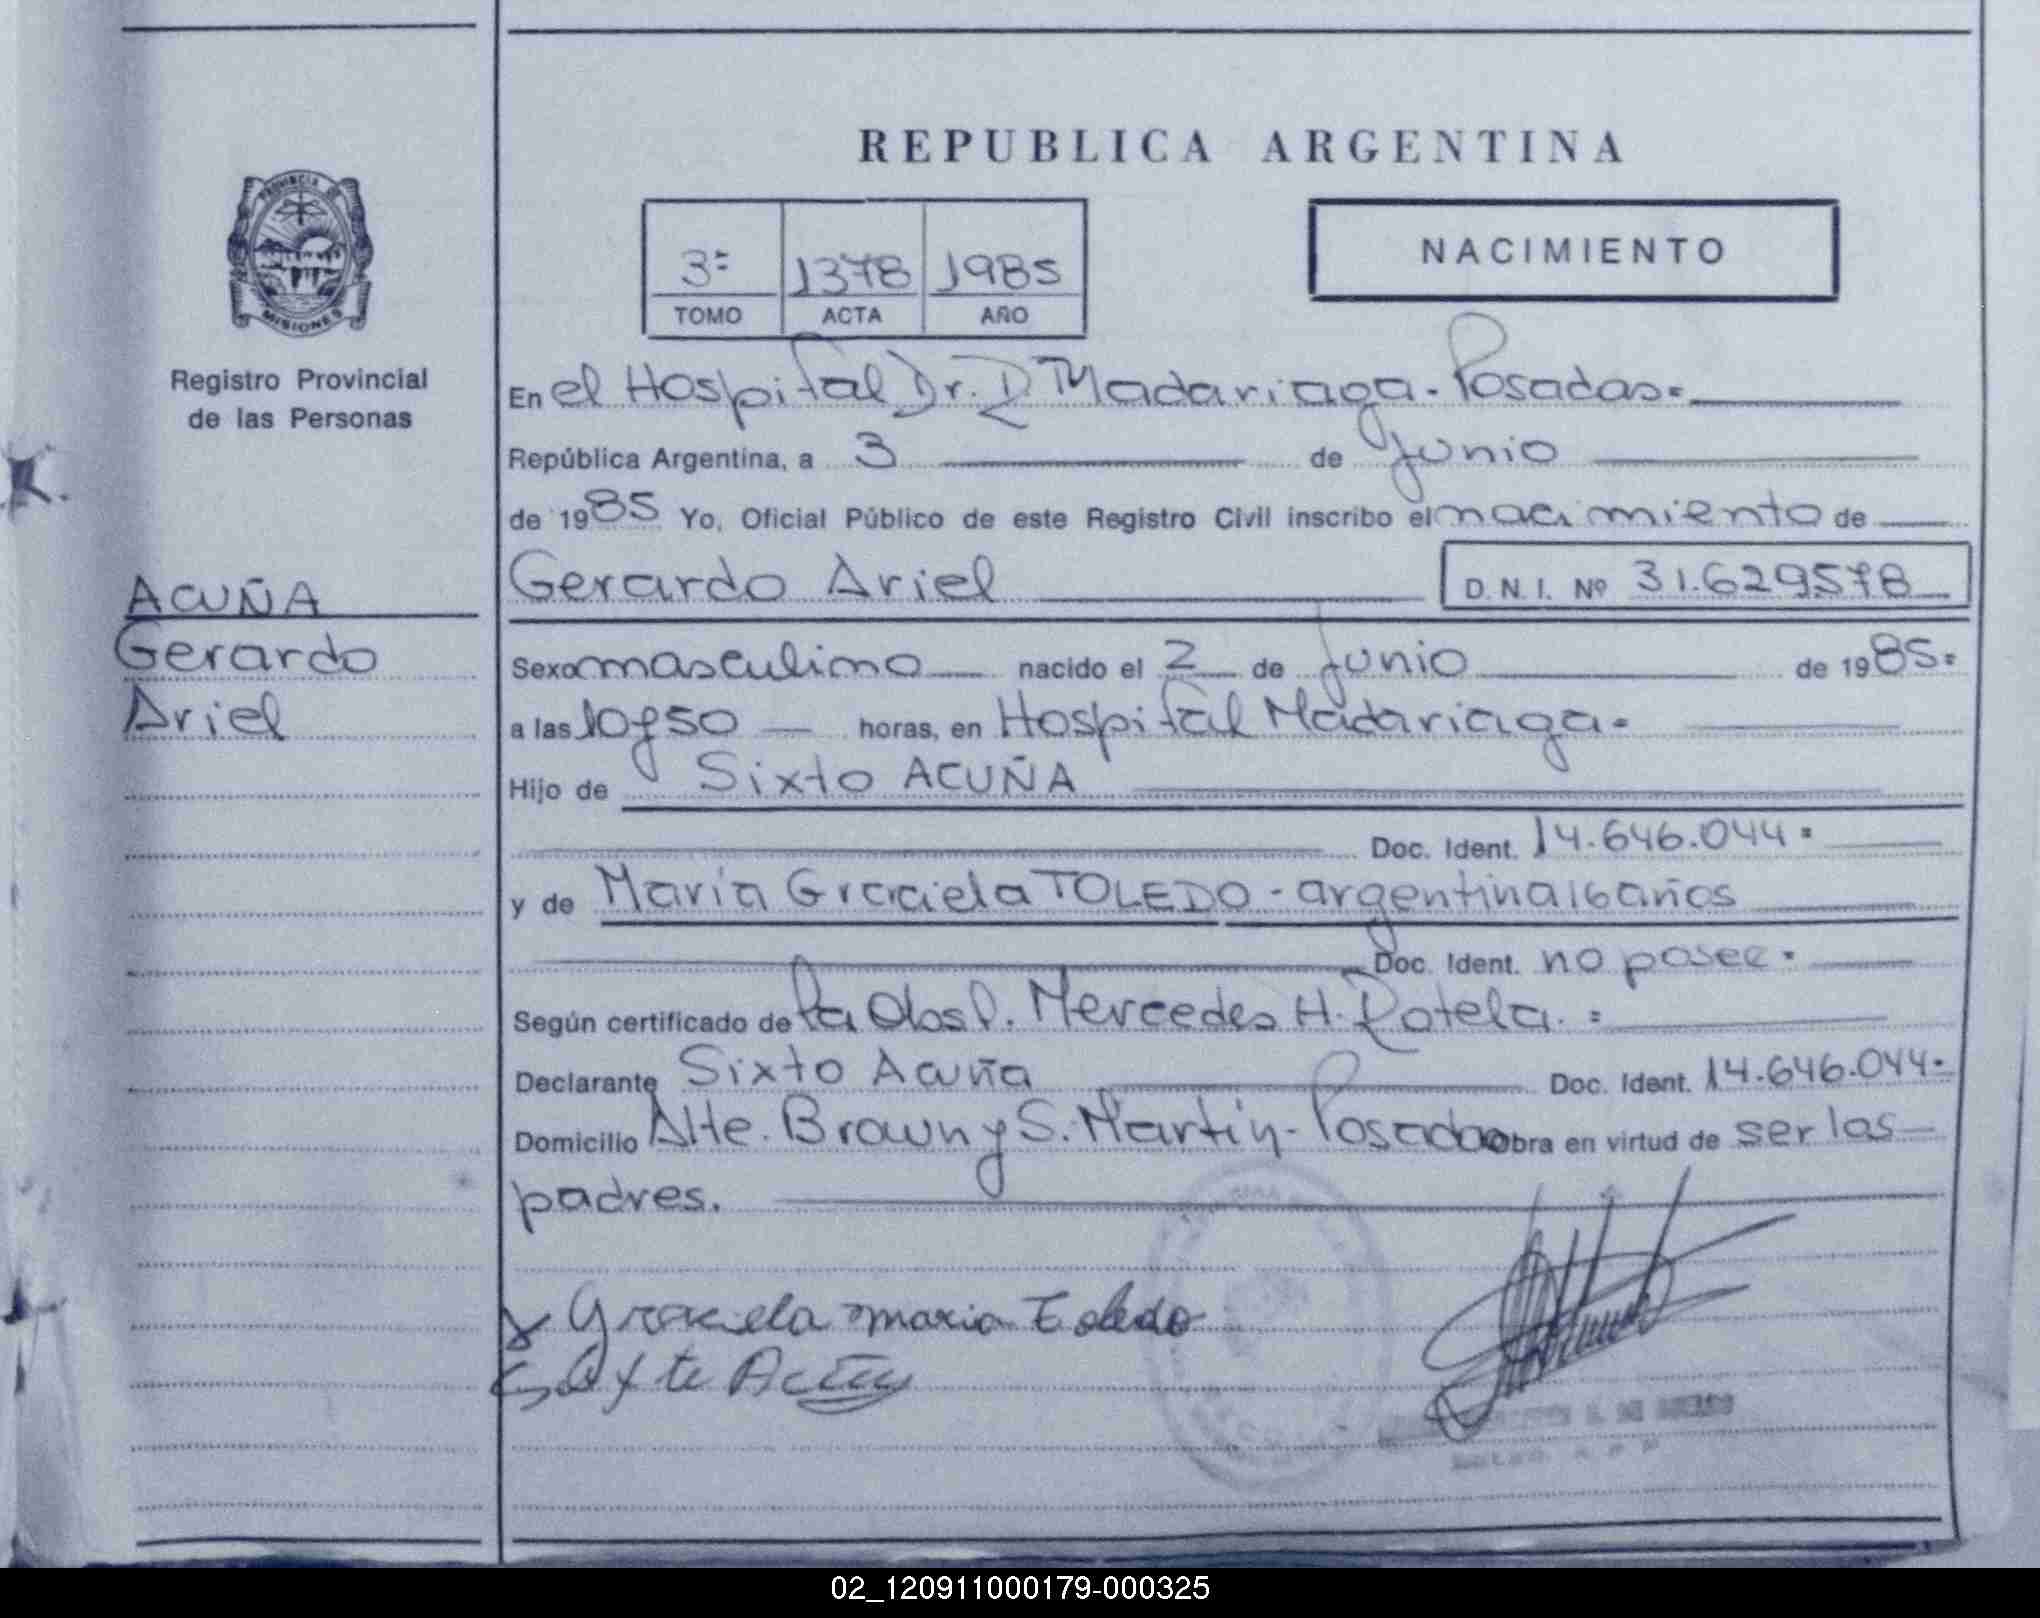 REPUBLICA ARGENTINA
PROVINCIA DE
MISIONES
Registro Provincial
de las Personas
3= 1378 1985
TOMO ACTA AÑO
NACIMIENTO
En el Hospital Dr. R. Madariaga - Posadas=
República Argentina, a 3 de Junio
de 1985 Yo, Oficial Público de este Registro Civil inscribo el nacimiento de
ACUÑA
Gerardo
Ariel
Gerardo Ariel D. N. I. Nº 31.629578
Sexo masculino nacido el 2 de Junio de 1985=
a las 10 y 50 horas, en Hospital Madariaga=
Hijo de Sixto ACUÑA
Doc. Ident. 14.646.044=
y de María Graciela TOLEDO - argentina 16 años
Doc. Ident. no posee=
Según certificado de la Obst. Mercedes H. Rotela. =
Declarante Sixto Acuña Doc. Ident. 14.646.044=
Domicilio Alte. Brown y S. Martín - Posadas obra en virtud de ser los
padres.
Graciela maria Toledo
Sixto Acuña
02_120911000179-000325